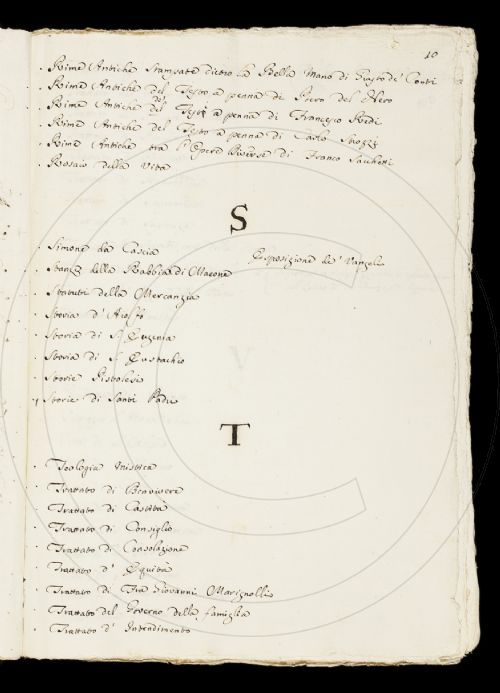 10
. Rime Antiche Stampate dietro la Bella Mano di Giusto de' Conti
. Rime Antiche del Testo a penna di Piero del Nero
. Rime Antiche del Testo a penna di Francesco Redi
. Rime Antiche del Testo a penna di Carlo Strozzi
. Rime Antiche tra l'Opere Diverse di Franco Sacchetti
. Rosaio della Vita
S
. Simone da Cascia Esposizione de' Vangeli
. Stanze della Rabbia di Macone
. Statuti della Mercanzia
. Storia d'
. Storia di S. Eugenia
. Storia di S. Eustachio
. Storie Pistolesi
Storie di Santi Padri
T
. Teologia Mistica
. Trattato di Benvivere
. Trattato di Castità
. Trattato di Consiglio
. Trattato di Consolazione
. Trattato d' Equità
. Trattato di Fra Giovanni Marignolli
. Trattato del Governo della famiglia
. Trattato d' Intendimento